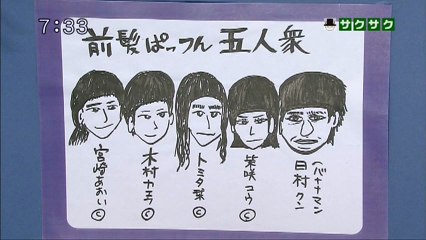 7:33
サクサク
前髪ぱっつん五人衆
宮崎あおい
©
木村カエラ
©
トミタ栞
©
柴咲コウ
©
(バナナマン
日村クン